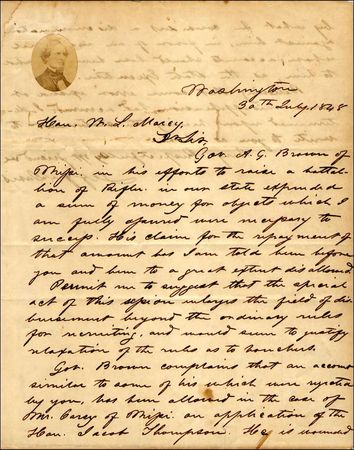 Washington
30th July 1848
Hon. W. L. Marcy,
Dr Sir,
Gov. A. G. Brown of
Missi. in his efforts to raise a battal-
lion of Rifles in our state expended
a sum of money for objects which I
am fully assured were necessary to
success. His claim for the repayment of
that amount has I am told been before
you and been to a great extent disallowed
Permit me to suggest that the special
act of this session enlarges the field of dis
bursement beyond the ordinary rules
for recruiting, and would seem to justify
relaxation of the rules as to vouchers.
Gov. Brown complains that an account
similar to some of his which were rejected
by you, has been allowed in the case of
Mr. of Missi. on application of the
Hon. Jacob Thompson. He is wounded